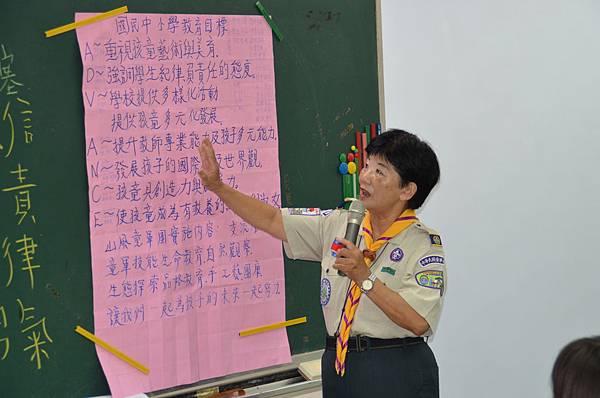 國民中小學教育目標
A~重視孩童藝術與美育.
D~強調學生紀律負責任的態度.
V~學校提供多樣化活動
提供孩童多元化發展.
A~提升教師專業能力及孩子多元能力.
N~發展孩子的國際 及世界觀.
C~孩童具創造力與 力.
E~使孩童成為有教養的
童軍團實施內容
童軍技能生命教育自然觀察
生態 品格教育手工藝
讓我們一起為孩子的未來一起努力
信
責
律
氣